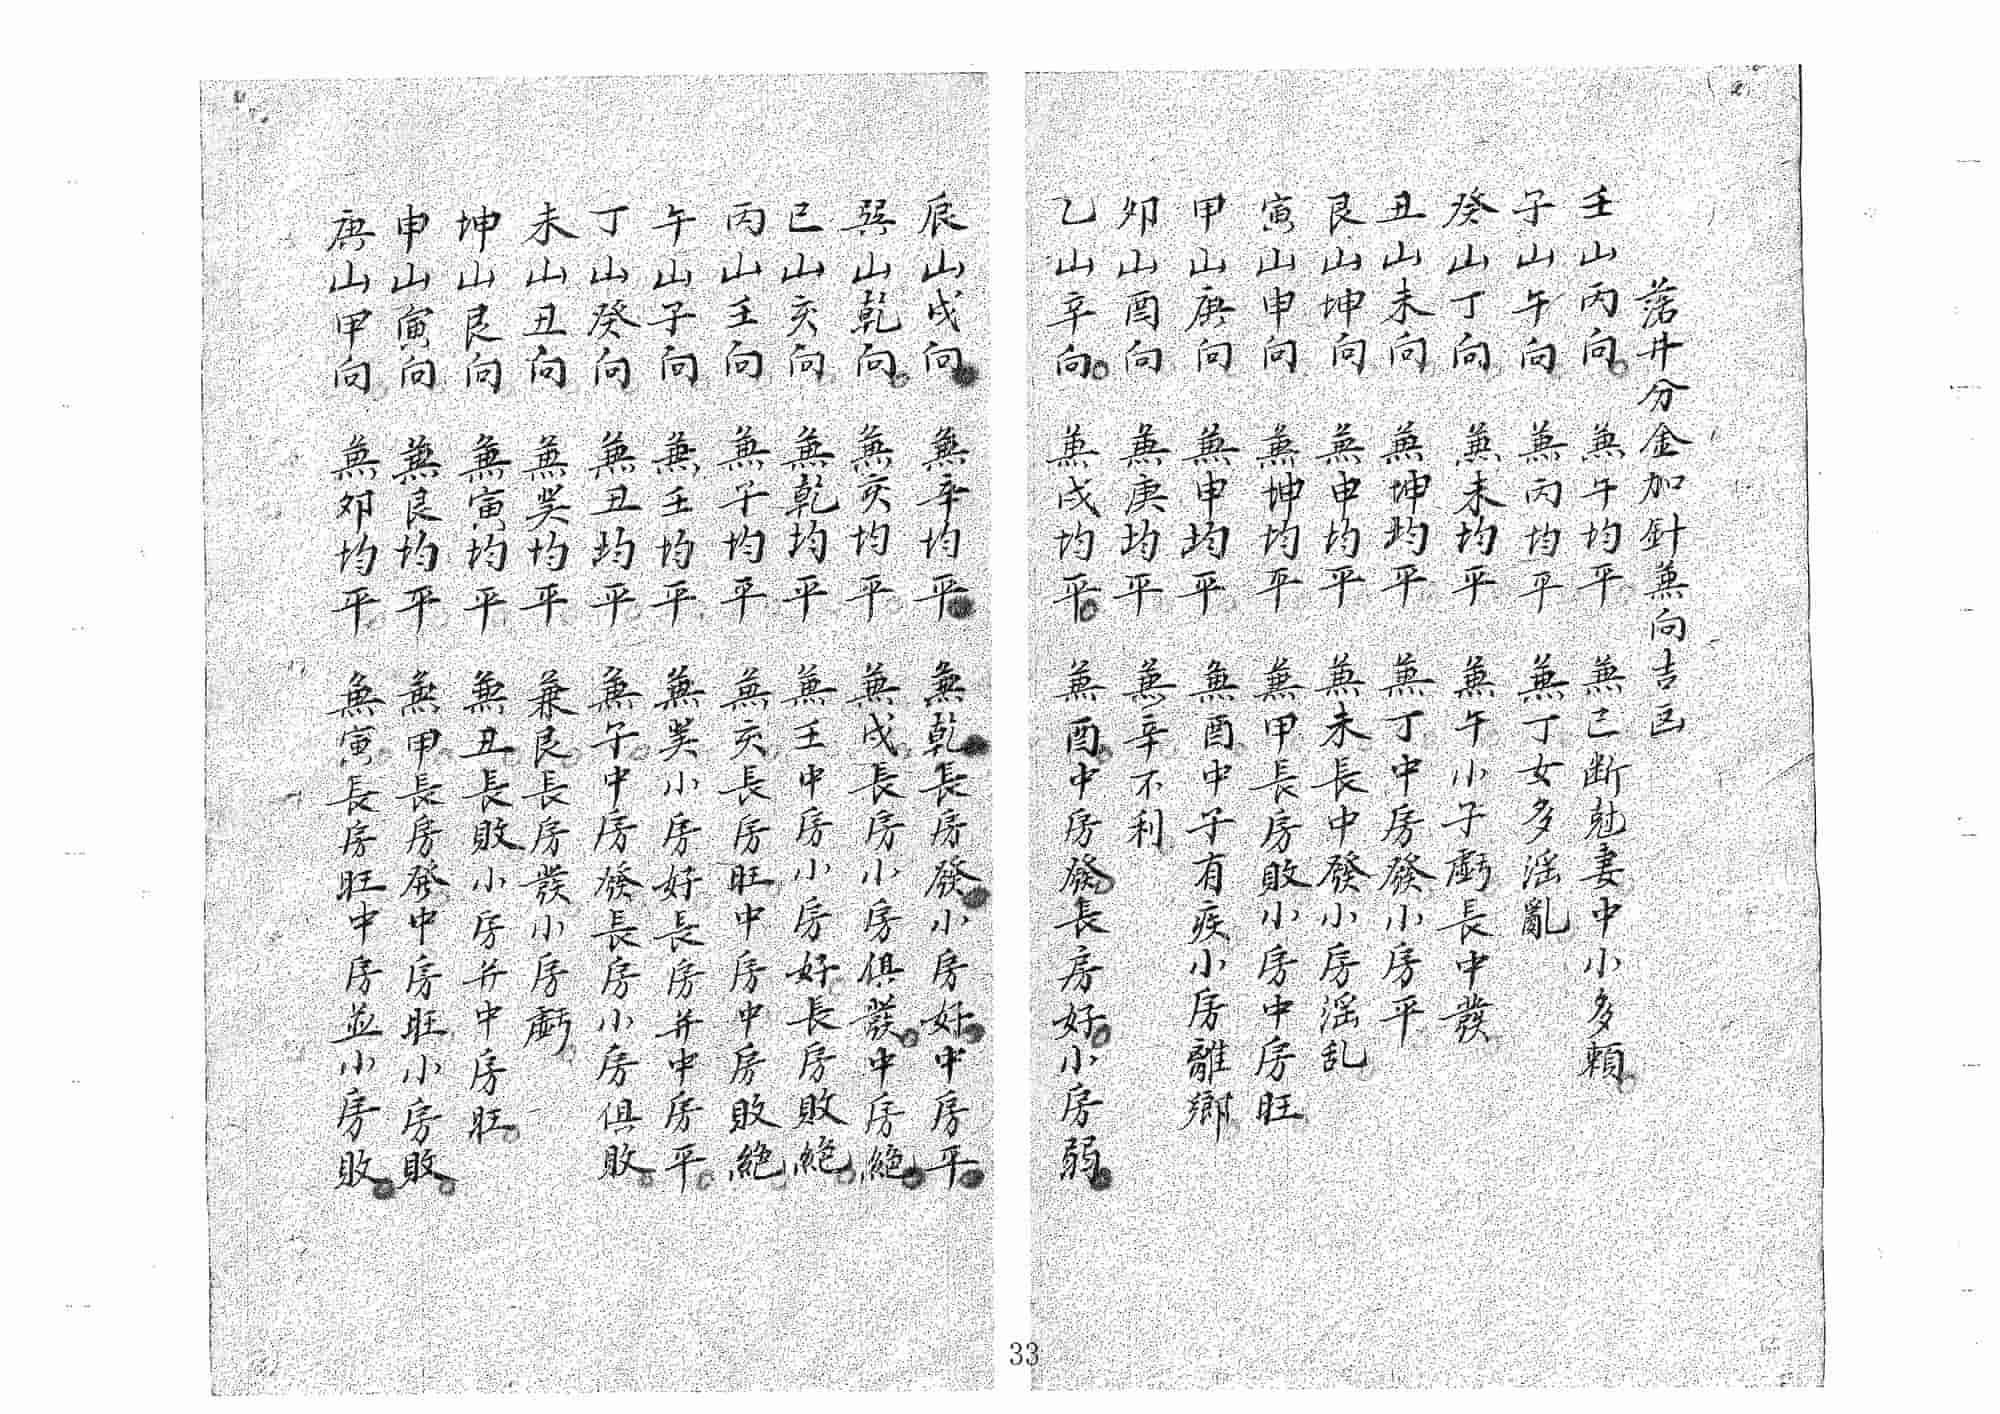 落井分金加針蒹向吉凶
壬山丙向 蒹午均平 蒹已断尅妻中小多賴
子山午向 蒹丙均平 蒹丁女多滛亂
癸山丁向 蒹未均平 蒹午小子虧長中發
丑山未向 蒹坤均平 蒹丁中房發小房平
艮山坤向 蒹申均平 蒹未長中發小房滛乱
寅山申向 蒹坤均平 蒹甲長房敗小房中房旺
甲山庚向 蒹申均平 蒹酉中子有疾小房離鄉
夘山酉向 蒹庚均平 蒹辛不利
乙山辛向 蒹戌均平 蒹酉中房發長房好小房弱
辰山戌向 蒹辛均平 蒹乾長房發小房好中房平
巽山乾向 蒹亥均平 蒹戌長房小房俱發中房絕
已山亥向 蒹乾均平 蒹壬中房小房好長房敗絕
丙山壬向 蒹子均平 蒹亥長房旺中房中房敗絕
午山子向 蒹壬均平 蒹癸小房好長房并中房平
丁山癸向 蒹丑均平 蒹午中房發長房小房俱敗
未山丑向 蒹癸均平 兼艮長房發小房虧
坤山艮向 蒹寅均平 蒹丑長敗小房并中房旺
申山寅向 蒹艮均平 蒹甲長房發中房旺小房敗
庚山甲向 蒹夘均平 蒹寅長房旺中房並小房敗
33